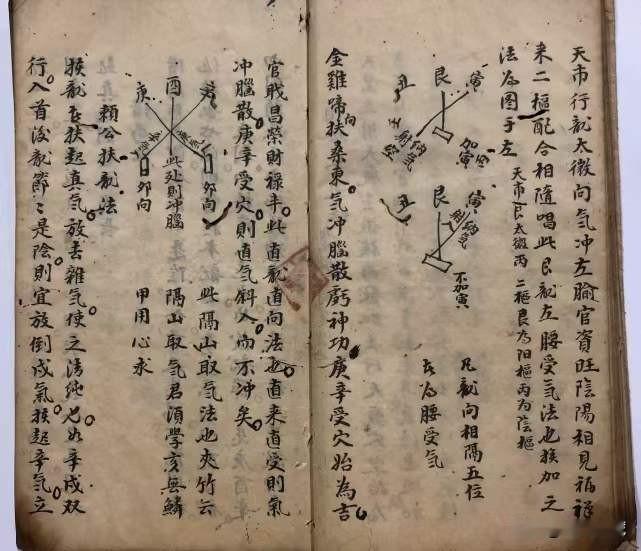 天市行龍太微向氣冲左腧官資旺陰陽相見福祿
来二樞配合相隨唱此艮龍左腰受氣法也挨加之
法為图于左
天市艮太微丙
二樞艮為阳樞丙為陰樞
寅
艮
丑
加寅
納氣
寅
艮
丑
納氣
不加寅
凡龍向相隔五位
長為腰受气
金雞啼向扶桑東气冲腦散虧神功庚辛受穴始為吉
官戝昌榮財祿丰此直龍直向法也直来直受則氣
冲腦散庚辛受穴則直气斜入而不冲矣
此隔山取气法也夾竹云
隔山取气君須學亥無鱗
甲用心求
酉
庚
辛
卯向
卯向
此处則冲腦
賴公扶龍法
挨龍左扶起真气放去雜气使之清純也如辛戌双
行入首後龍節〻是陰則宜放倒戌氣挨起辛气立